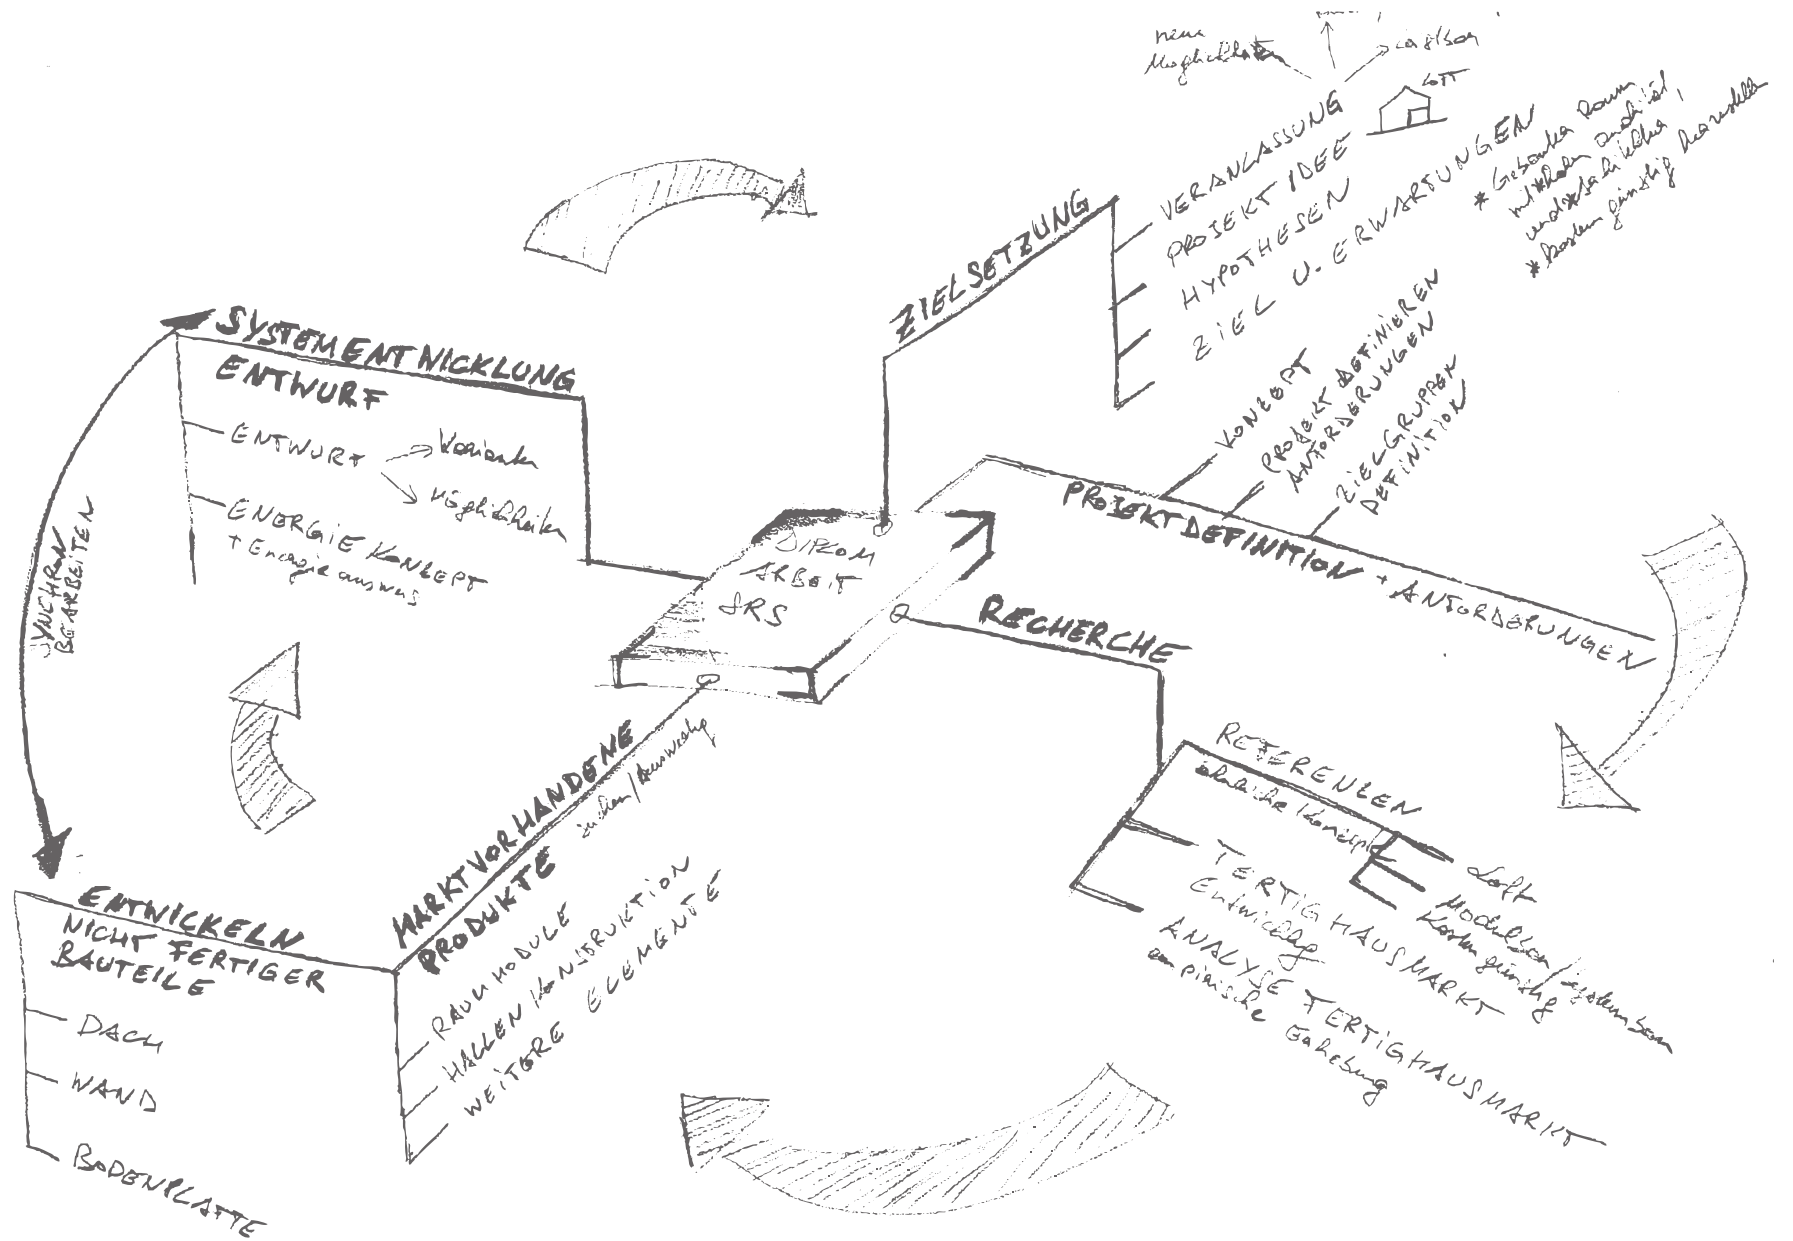 neue
Möglichkeiten
LOFT
ZIELSETZUNG
VERANLASSUNG
PROJEKT IDEE
HYPOTHESEN
ZIEL U. ERWARTUNGEN
* kostengünstig herstellen
SYSTEMENTWICKLUNG
ENTWURF
ENTWURF
Varianten
Möglichkeiten
ENERGIE KONZEPT
+ Energieausweis
SYNCHRON
BEARBEITEN
DIPLOM
ARBEIT
SRS
KONZEPT
PROJEKT DEFINIEREN
ANFORDERUNGEN
ZIELGRUPPEN
DEFINITION
PROJEKTDEFINITION + ANFORDERUNGEN
RECHERCHE
REFERENZEN
ähnliche Konzepte
Loft
Modulbau/Systembau
Kostengünstig
FERTIGHAUSMARKT
Entwicklg
ANALYSE FERTIGHAUSMARKT
empirische Erhebung
MARKTVORHANDENE
PRODUKTE
suchen/Auswertg
RAUMMODULE
HALLENKONSTRUKTION
WEITERE ELEMENTE
ENTWICKELN
NICHT FERTIGER
BAUTEILE
DACH
WAND
BODENPLATTE